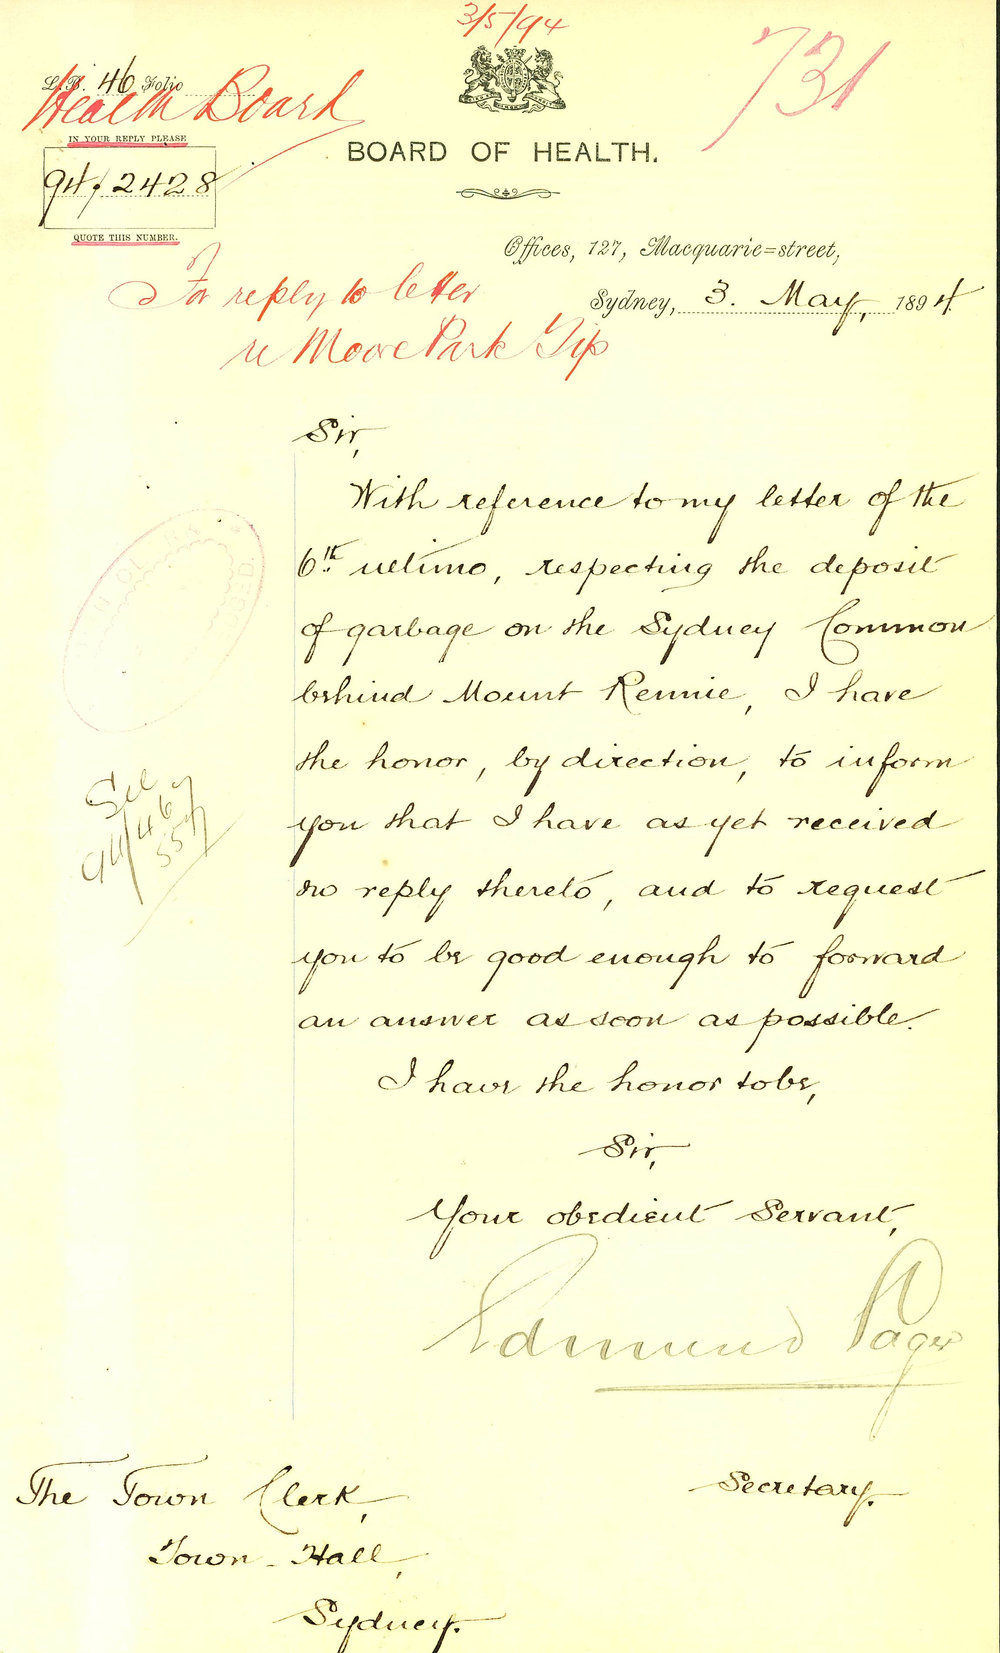 3/5/94
731
L.B. 46 Folio
Health Board
IN YOUR REPLY PLEASE
94/2428
QUOTE THIS NUMBER.
BOARD OF HEALTH.
Offices, 127, Macquarie=street,
Sydney, 3. May, 1894.
For reply to letter
re Moore Park Tip
Sir,
With reference to my letter of the
6th ultimo, respecting the deposit
of garbage on the Sydney Common
behind Mount Rennie, I have
the honor, by direction, to inform
you that I have as yet received
no reply thereto, and to request
you to be good enough to forward
an answer as soon as possible.
See
94/467
557
I have the honor to be,
Sir,
Your obedient Servant,
Edmund Sager
Secretary.
The Town Clerk,
Town-Hall,
Sydney.